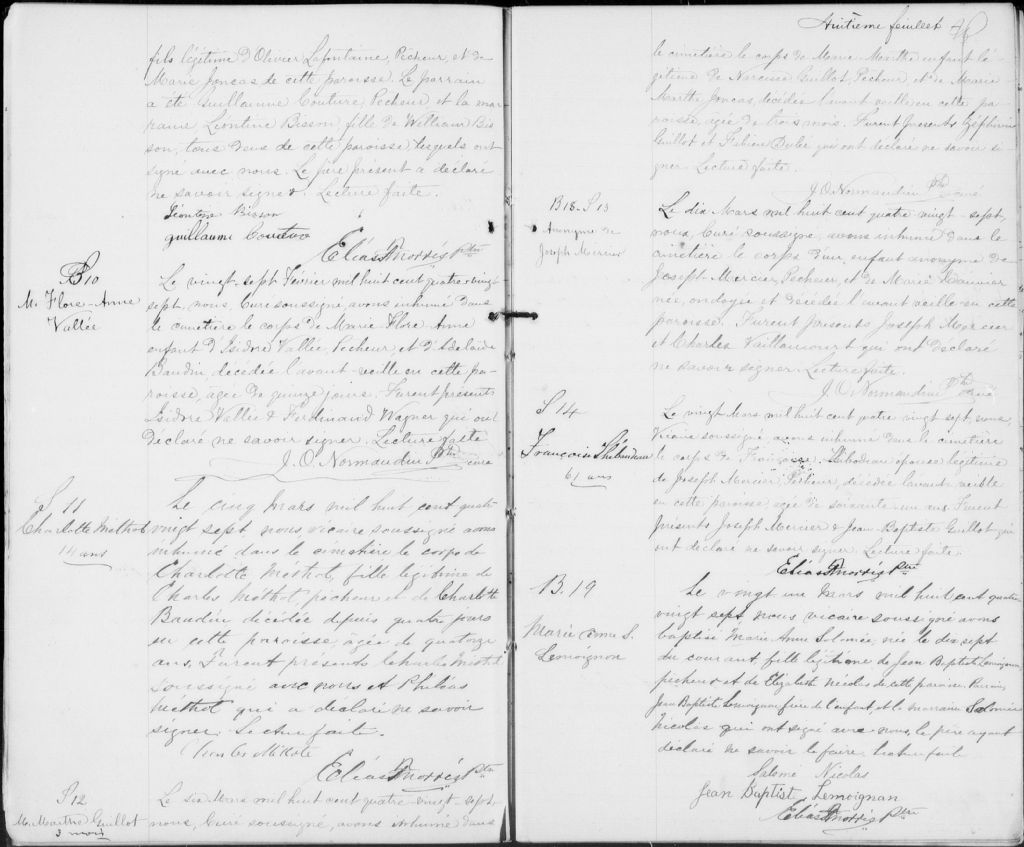 fils légitime d'Olivier Lafontaine, Pêcheur, et de
Marie Joncas de cette paroisse. Le parrain
a été Guillaume Couture, Pêcheur, et la mar
raine, Léontine Bisson, fille de William Bis
son, tous deux de cette paroisse, lesquels ont
signé avec nous. Le père présent a déclaré
ne savoir signer. Lecture faite.
Léontine Bisson
guillaume Coutur
Elias Morris Ptre
S 10
M. Flore-Anne
Vallée
Le vingt-sept Février mil huit cent quatre-vingt
sept, nous, Curé soussigné, avons inhumé dans
le cimetière le corps de Marie Flore Anne
enfant d'Isidre Vallée, Pêcheur, et d'Adelaïde
Baudin, décédée l'avant-veille en cette pa-
roisse, agée de quinze jours. Furent présents
Isidre Vallée & Ferdinand Wagner qui ont
déclaré ne savoir signer. Lecture faite
J. O. Normandin Ptre curé
S 11
Charlotte Méthot
14 ans
Le cinq mars mil huit cent quatre
vingt sept nous vicaire soussigné avons
inhumé dans le cimetière le corps de
Charlotte Méthot, fille légitime de
Charles Méthot, pêcheur et de Charlotte
Baudin décédée depuis quatre jours
en cette paroisse, agée de quatorze
ans. Furent présents Charles Méthot
soussigné avec nous et Philéas
Méthot qui a déclaré ne savoir
signer. Lecture faite.
Elias Morris Ptre
S 12
M. Marthe Guillot
3 mois
Le dix Mars mil huit cent quatre-vingt-sept,
nous, Curé soussigné, avons inhumé dans
Huitieme feuillet
le cimetière le corps de Marie-Marthe enfant lé-
gitime de Narcisse Guillot, Pêcheur, et de Marie
Marthe Joncas, décédée l'avant veille en cette pa-
roisse, agée de trois mois. Furent présents Zéphirin
Guillot et Fabien Dubé qui ont déclaré ne savoir si-
gner. Lecture faite.
J. O. Normandin Ptre curé
B 18 - S 13
Anonyme de
Joseph Mercier
Le dix Mars mil huit cent quatre vingt-sept,
nous, Curé soussigné, avons inhumé dans le
cimetière le corps d'un enfant anonyme de
Joseph Mercier, Pêcheur, et de Marie
née, ondoyée et décédée l'avant veille en cette
paroisse. Furent présents Joseph Mercier
et Charles Vaillancourt qui ont déclaré
ne savoir signer. Lecture faite.
J. O. Normandin Ptre curé
S 14
Françoise Thibaudeau
61 ans
Le vingt Mars mil huit cent quatre vingt sept, nous
Vicaire soussigné, avons inhumé dans le cimetière
le corps de Françoise Thibodeau épouse légitime
de Joseph Mercier, Pêcheur, décédée l'avant veille
en cette paroisse agée de soixante-un ans. Furent
présents Joseph Mercier & Jean-Baptiste Guillot qui
ont déclaré ne savoir signer. Lecture faite.
Elias Morris Ptre
B. 19
Marie Anne S.
Lemoignan
Le vingt un mars mil huit cent quatre
vingt sept nous vicaire soussigné avons
baptisé Marie Anne Salomée, née le dix sept
du courant, fille légitime de Jean Baptiste Lemoignan
pêcheur et de Elizabeth Nicolas de cette paroisse. Parrain,
Jean Baptiste Lemoignan frère de l'enfant, et la marraine Salomée
Nicolas qui ont signé avec nous, le père ayant
déclaré ne savoir le faire. Lecture faite
Salomé Nicolas
Jean Baptist Lemoignan
Elias Morris Ptre